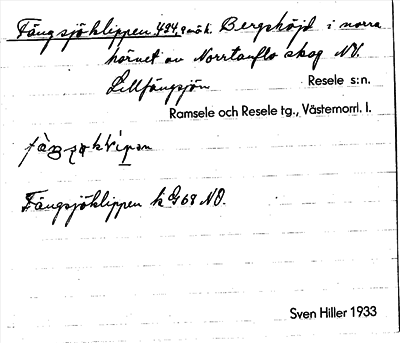 Fängsjöklippen 434,9 m ö h. Bergshöjd i norra
hörnet av Norrtanflo skog NV.
Lillfängsjön
Resele s:n.
Ramsele och Resele tg., Västernorrl. l.
Fängsjöklippen k G 68 NO.
Sven Hiller 1933